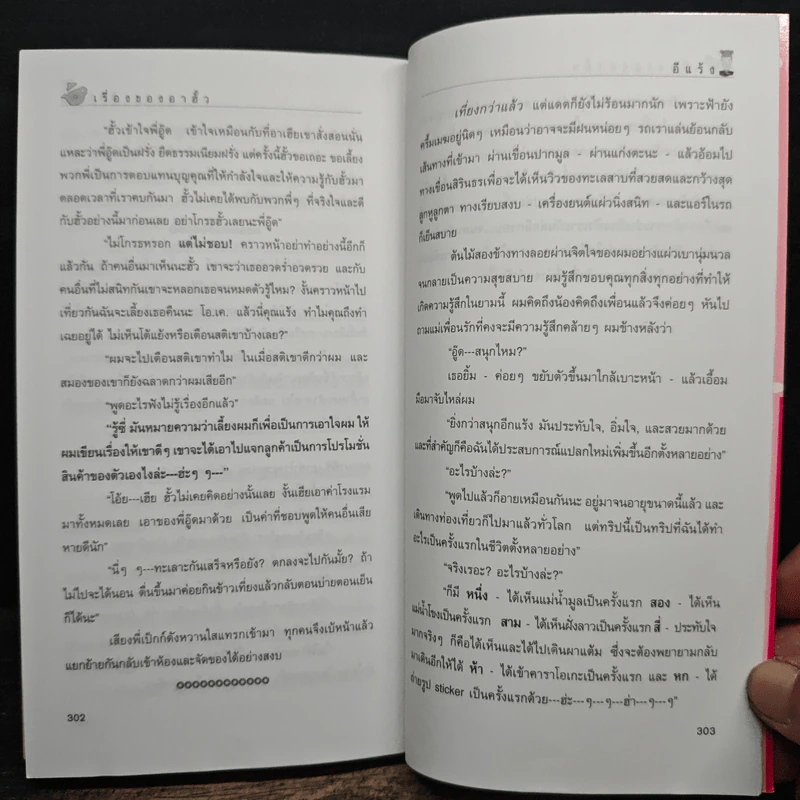 เรื่องของอาฮั้ว
"ฮั้วเข้าใจพี่อู๊ด เข้าใจเหมือนกับที่อาเฮียเขาสั่งสอนนั่น
แหละว่าพี่อู๊ดเป็นฝรั่ง ยึดธรรมเนียมฝรั่ง แต่ครั้งนี้ฮั้วขอเถอะ ขอเลี้ยง
พวกพี่เป็นการตอบแทนบุญคุณที่ให้กำลังใจและให้ความรู้กับฮั้วมา
ตลอดเวลาที่เราคบกันมา ฮั้วไม่เคยได้พบกับพวกพี่ๆ ที่จริงใจและดี
กับฮั้วอย่างนี้มาก่อนเลย อย่าโกรธฮั้วเลยนะพี่อู๊ด"
"ไม่โกรธหรอก แต่ไม่ชอบ! คราวหน้าอย่าทำอย่างนี้อีกก็
แล้วกัน ถ้าคนอื่นมาเห็นนะฮั้ว เขาจะว่าเธออวดร่ำอวดรวย และกับ
คนอื่นที่ไม่สนิทกันเขาจะหลอกเธอจนหมดตัวรู้ไหม? งั้นคราวหน้าไป
เที่ยวกันฉันจะเลี้ยงเธอคืนนะ โอ.เค. แล้วนี่คุณแร้ง ทำไมคุณถึงทำ
เฉยอยู่ได้ ไม่เห็นโต้แย้งหรือเตือนสติเขาบ้างเลย?"
"ผมจะไปเตือนสติเขาทำไม ในเมื่อสติเขาดีกว่าผม และ
สมองของเขาก็ยังฉลาดกว่าผมเสียอีก"
"พูดอะไรฟังไม่รู้เรื่องอีกแล้ว"
"รู้ซี่ มันหมายความว่าเลี้ยงผมก็เพื่อเป็นการเอาใจผม ให้
ผมเขียนเรื่องให้เขาดีๆ เขาจะได้เอาไปแจกลูกค้าเป็นการโปรโมชั่น
สินค้าของตัวเองไงล่ะ---ฮ่ะๆ ๆ---"
"โอ้ย---เฮีย ฮั้วไม่เคยคิดอย่างนั้นเลย งั้นเฮียเอาค่าโรงแรม
มาทั้งหมดเลย เอาของพี่อู๊ดมาด้วย เป็นค่าที่ชอบพูดให้คนอื่นเสีย
หายดีนัก"
"นี่ๆ ๆ---ทะเลาะกันเสร็จหรือยัง? ตกลงจะไปกันมั้ย? ถ้า
ไม่ไปจะได้นอน ตื่นขึ้นมาค่อยกินข้าวเที่ยงแล้วกลับตอนบ่ายตอนเย็น
ก็ได้นะ"
เสียงพี่เบิ๊กก็ดังหวานใสแทรกเข้ามา ทุกคนจึงเบ้หน้าแล้ว
แยกย้ายกันกลับเข้าห้องและจัดของได้อย่างสงบ
302
อีแร้ง
เที่ยงกว่าแล้ว แต่แดดก็ยังไม่ร้อนมากนัก เพราะฟ้ายัง
ครึ้มเมฆอยู่นิดๆ เหมือนว่าอาจจะมีฝนหน่อยๆ รถเราแล่นย้อนกลับ
เส้นทางที่เข้ามา ผ่านเขื่อนปากมูล - ผ่านแก่งตะนะ - แล้วอ้อมไป
ทางเขื่อนสิรินธรเพื่อจะได้เห็นวิวของทะเลสาบที่สวยสดและกว้างสุด
ลูกหูลูกตา ทางเรียบสงบ - เครื่องยนต์แผ่วนิ่งสนิท - และแอร์ในรถ
ก็เย็นสบาย
ต้นไม้สองข้างทางลอยผ่านจิตใจของผมอย่างแผ่วเบานุ่มนวล
จนกลายเป็นความสุขสบาย ผมรู้สึกขอบคุณทุกสิ่งทุกอย่างที่ทำให้
เกิดความรู้สึกในยามนี้ ผมคิดถึงน้องคิดถึงเพื่อนแล้วจึงค่อยๆ หันไป
ถามแม่เพื่อนรักที่คงจะมีความรู้สึกคล้ายๆ ผมข้างหลังว่า
"อู๊ด---สนุกไหม?"
เธอยิ้ม - ค่อยๆ ขยับตัวขึ้นมาใกล้เบาะหน้า - แล้วเอื้อม
มือมาจับไหล่ผม
"ยิ่งกว่าสนุกอีกแร้ง มันประทับใจ, อิ่มใจ, และสวยมากด้วย
และที่สำคัญก็คือฉันได้ประสบการณ์แปลกใหม่เพิ่มขึ้นอีกตั้งหลายอย่าง"
"อะไรบ้างล่ะ?"
"พูดไปแล้วก็อายเหมือนกันนะ อยู่มาจนอายุขนาดนี้แล้ว และ
เดินทางท่องเที่ยวก็ไปมาแล้วทั่วโลก แต่ทริปนี้เป็นทริปที่ฉันได้ทำ
อะไรเป็นครั้งแรกในชีวิตตั้งหลายอย่าง"
"จริงเรอะ? อะไรบ้างล่ะ?
"ก็มี หนึ่ง - ได้เห็นแม่น้ำมูลเป็นครั้งแรก สอง - ได้เห็น
แม่น้ำโขงเป็นครั้งแรก สาม - ได้เห็นฝั่งลาวเป็นครั้งแรก สี่ - ประทับใจ
มากจริงๆ ก็คือได้เห็นและได้ไปเดินผาแต้ม ซึ่งจะต้องพยายามกลับ
มาเดินอีกให้ได้ ห้า - ได้เข้าคาราโอเกะเป็นครั้งแรก และ หก - ได้
ถ่ายรูป sticker เป็นครั้งแรกด้วย---ฮ่ะ---ๆ---ๆ---ฮ่า---ๆ---ๆ"
303